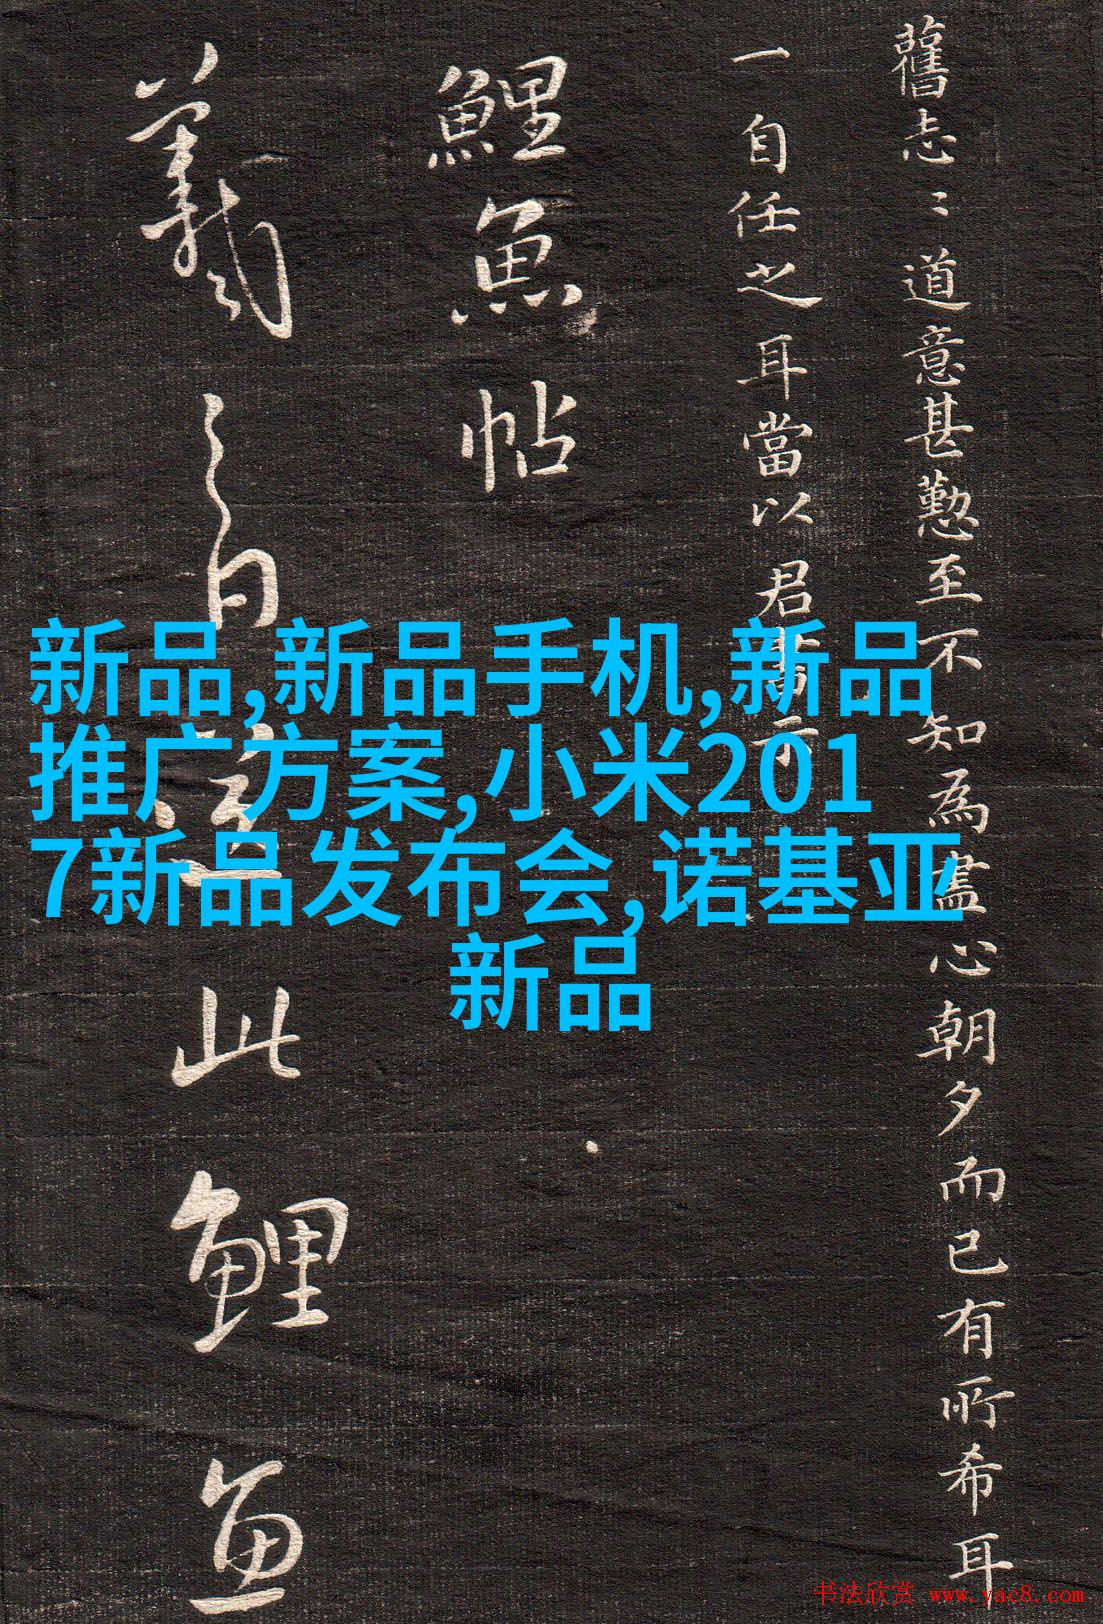 舊志〻道意甚懃至不知為盡心朝夕而已有所希耳
一自任之耳當以君書示
鯉魚帖
羲之白送此鯉魚
新品,新品手机,新品
推广方案,小米201
7新品发布会,诺基亚
新品
书法欣赏 www.yac8.com